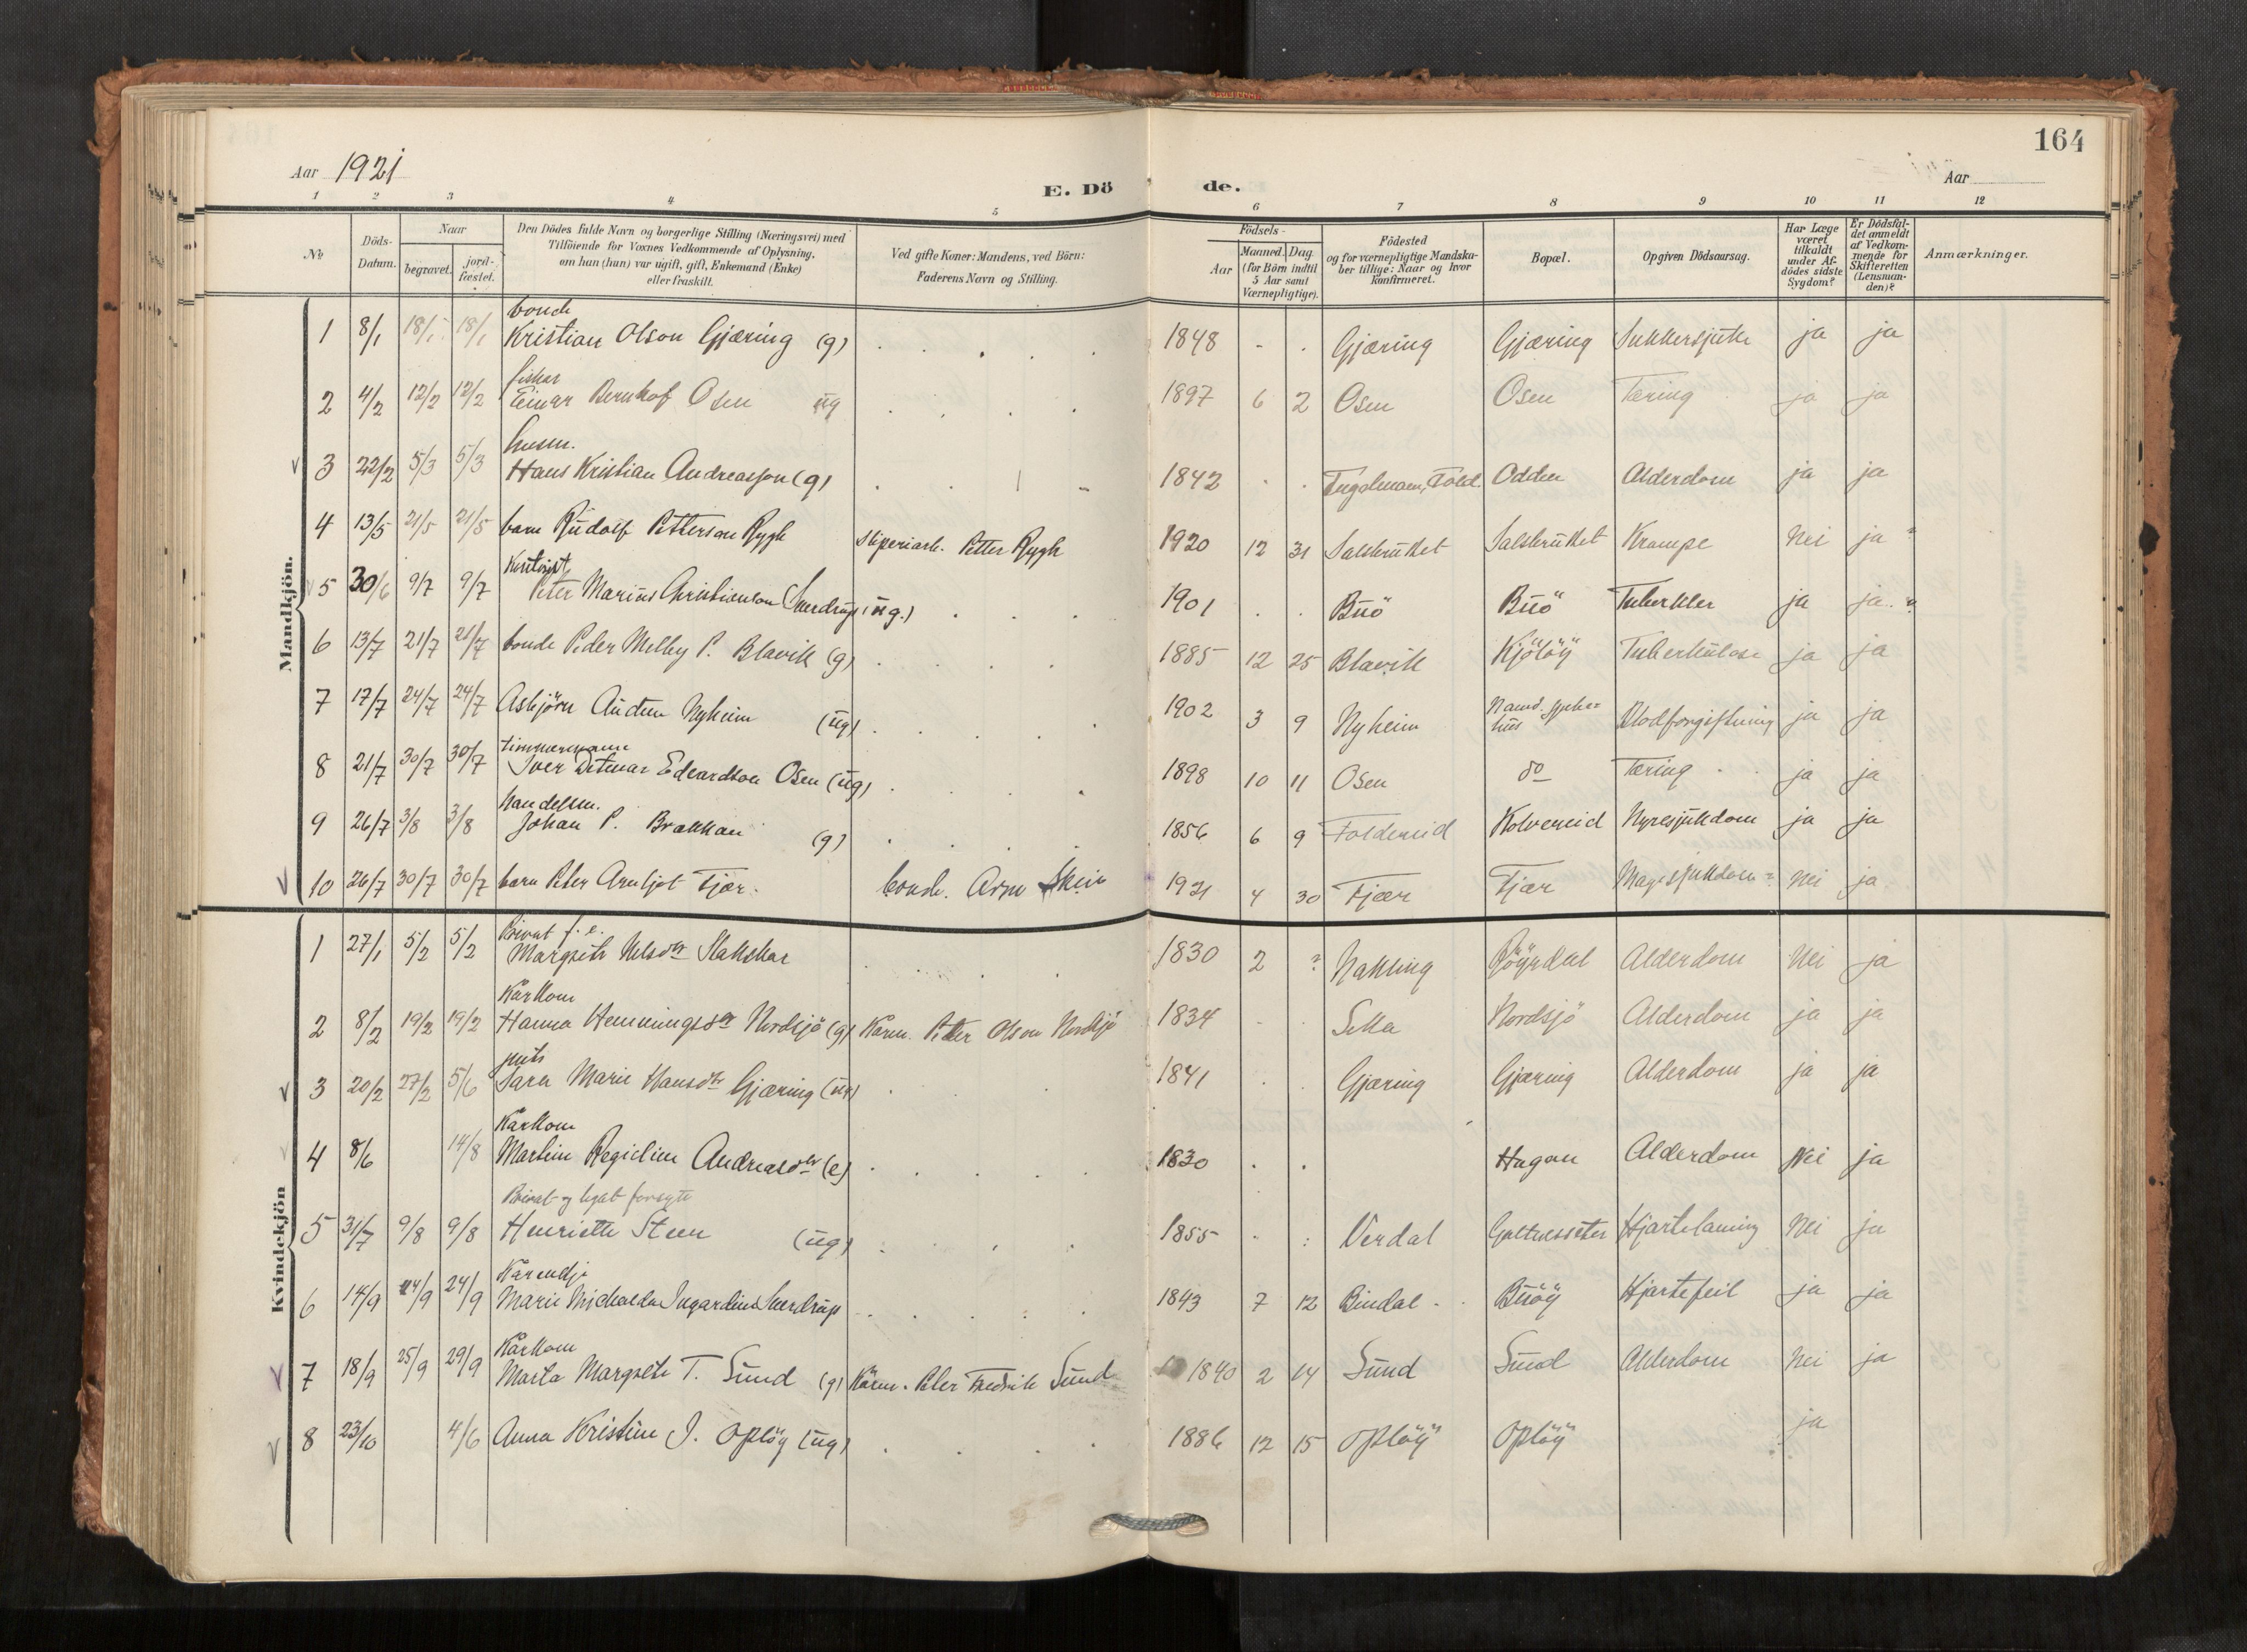 164
Aar 1921
Aar
E. Dö de.
1 2 3 4 5 6 7 8 9 10 11 12
No
Döds-Datum.
Naar
begravet.
jord-fæstet.
Den Dödes fulde Navn og borgerlige Stilling (Næringsvei) med
Tilföiende for Voxnes Vedkommende af Oplysning,
om han (hun) var ugift, gift, Enkemand (Enke)
eller fraskilt.
Ved gifte Koner: Mandens, ved Börn:
Faderens Navn og Stilling.
Födsels-
Aar
Maaned. Dag
(for Börn indtil
5 Aar samt
Værnepligtige).
Födested
og for værnepligtige Mandska-
ber tillige: Naar og hvor
konfirmeret.
Bopæl.
Opgiven Dödsaarsag.
Har Læge
været
tilkaldt
under Af-
dödes sidste
Sygdom?
Er Dödsfal-
det anmeldt
af Vedkom-
mende for
Skifteretten
(Lensman-
den)?
Anmærkninger.
Mandkjön.
bonde
1 8/1 18/1 18/1 Kristian Olson Gjæring (g) 1848 Gjæring Gjæring Sukkersjuke ja ja
fisker
2 4/2 12/2 12/2 Einar Bernhof Osen ug 1897 6 2 Osen Osen Tæring ja ja
husm.
3 22/2 5/3 5/3 Hans Kristian Andreasson (g) 1842 Fold. Odden Alderdom ja ja
4 13/5 21/5 21/5 barn Rudolf Petterson Rygh Sliperiarb. Petter Rygh 1920 12 31 Salsbruket Salsbruket Krampe Nei ja
5 30/6 9/7 9/7 Peter Marius Christianson Sverdrup (ug.) 1901 Buö Buö Tuberkler ja ja
6 13/7 21/7 21/7 bonde Peder Melby P. Blavik (g) 1885 12 25 Blavik Kjölöy Tuberkulose ja ja
7 17/7 24/7 24/7 Asbjörn Audun Nyheim (ug) 1902 3 9 Nyheim Namd. sjuke=
hus Blodforgiftning ja ja
timmermann
8 21/7 30/7 30/7 Iver Ditmar Edvardson Osen (ug) 1898 10 11 Osen do Tæring ja ja
handelsm.
9 26/7 3/8 3/8 Johan P. Brakkan (g) 1856 6 9 Foldereid Kolvereid Nyresjukdom ja ja
10 26/7 30/7 30/7 barn Peter Arnljot Fjær. bonde. Arne Skein 1921 4 30 Fjær Fjær Magesjukdom? Nei ja
Kvindekjön
Privat f. e.
1 27/1 5/2 5/2 Margrete Nilsdtr Slakskar 1830 2 ? Nakling Röyrdal Alderdom Nei ja
Kårkone
2 8/2 19/2 19/2 Hanna Henningsdtr Nordsjö (g) Kårm. Peter Olson Nordsjö 1834 Setla Nordsjö Alderdom ja ja
3 20/2 27/2 5/6 Sara Marie Hansdtr Gjæring (ug) 1841 Gjæring Gjæring Alderdom ja ja
Kårkone
4 8/6 14/8 Martine Regieline Andreasdtr (e) 1830 Hagan Alderdom Nei ja
Privat og legat forsyti
5 31/7 9/8 9/8 Henriette Steen (ug) 1855 Verdal Hjartelaming Nei ja
Kårenkje
6 14/9 24/9 24/9 Marie Michaelda Ingardine Sverdrup 1843 7 12 Bindal Buöy Hjartefeil ja ja
Kårkone
7 18/9 25/9 29/9 Marta Margrete T. Sund (g) Kårm. Peter Fredrik Sund 1840 2 14 Sund Sund Alderdom Nei ja
8 23/10 4/6 Anna Kristine J. Oplöy (ug) 1886 12 15 Oplöy Oplöy ja